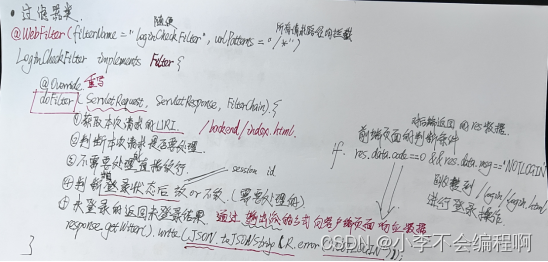 • 过滤器类
随便
所有请求路径均拦截
@WebFilter(filterName = "loginCheckFilter", urlPatterns = "/*")
LoginCheckFilter implements Filter {
@Override 重写
doFilter ( ServletRequest, ServletResponse, FilterChain). {
①获取本次请求的URI. /backend/index.html.
②判断本次请求是否需要处理.
③不需要处理直接放行
session id
④判断登录状态后放or不放. (需要处理的)
⑤未登录的返回未登录结果 通过输出流的方式向客户端页面响应数据
response.getWriter().write(JSON.toJSONString(R.error("NOTLOGIN")));
}
后端返回的res数据.
前端页面的判断条件
if. res.data.code==0 && res.data.msg=='NOTLOGIN'
则跳转到 /login/login.html
进行登录操作
CSDN @小李不会编程啊